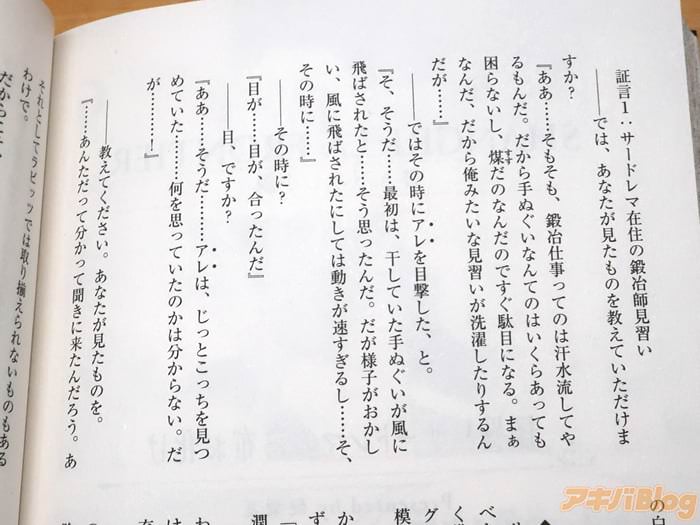 証言1：サードレマ在住の鍛冶師見習い
――では、あなたが見たものを教えていただけま
すか？
『ああ……そもそも、鍛冶仕事ってのは汗水流してや
るもんだ。だから手ぬぐいなんてのはいくらあっても
困らないし、煤だのなんだのですぐ駄目になる。まぁ
なんだ、だから俺みたいな見習いが洗濯したりするん
だが……』
――ではその時にアレを目撃した、と。
『そ、そうだ……最初は、干していた手ぬぐいが風に
飛ばされたと……そう思ったんだ。だが様子がおかし
い、風に飛ばされたにしては動きが速すぎるし……そ、
その時に……』
――その時に？
『目が……目が、合ったんだ』
――目、ですか？
『ああ……そうだ………アレは、じっとこっちを見つ
めていた……何を思っていたのかは分からない。だ
が………』
――教えてください。あなたが見たものを。
『……あんただって分かって聞きに来たんだろう。あ
それとしてラビッツでは取り揃えられないものもある
わけで。
の白
アキバBlog